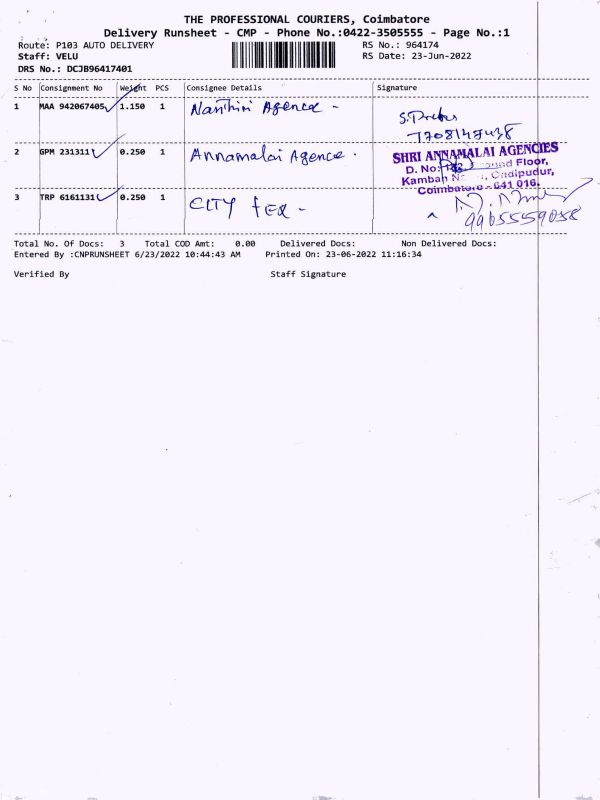 THE PROFESSIONAL COURIERS, Coimbatore
Delivery Runsheet - CMP - Phone No.:0422-3505555 - Page No.:1
Route: P103 AUTO DELIVERY
RS No.: 964174
Staff: VELU
RS Date: 23-Jun-2022
DRS No.: DCJB96417401
S No Consignment No Weight PCS Consignee Details Signature
1 MAA 942067405 1.150 1 Nanthini Agence -
7708147438
2 GPM 231311 0.250 1 Annamalai Agence .
SHRI ANNAMALAI AGENCIES
D. No: Floor,
Kamban Ondipudur,
Coimbatore - 641 016.
3 TRP 6161131 0.250 1 CITY TEX -
9965559058
Total No. Of Docs: 3 Total COD Amt: 0.00 Delivered Docs: Non Delivered Docs:
Entered By :CNPRUNSHEET 6/23/2022 10:44:43 AM Printed On: 23-06-2022 11:16:34
Verified By Staff Signature